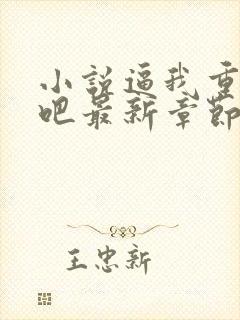 小说逼我重
吧最新章节
王忠新